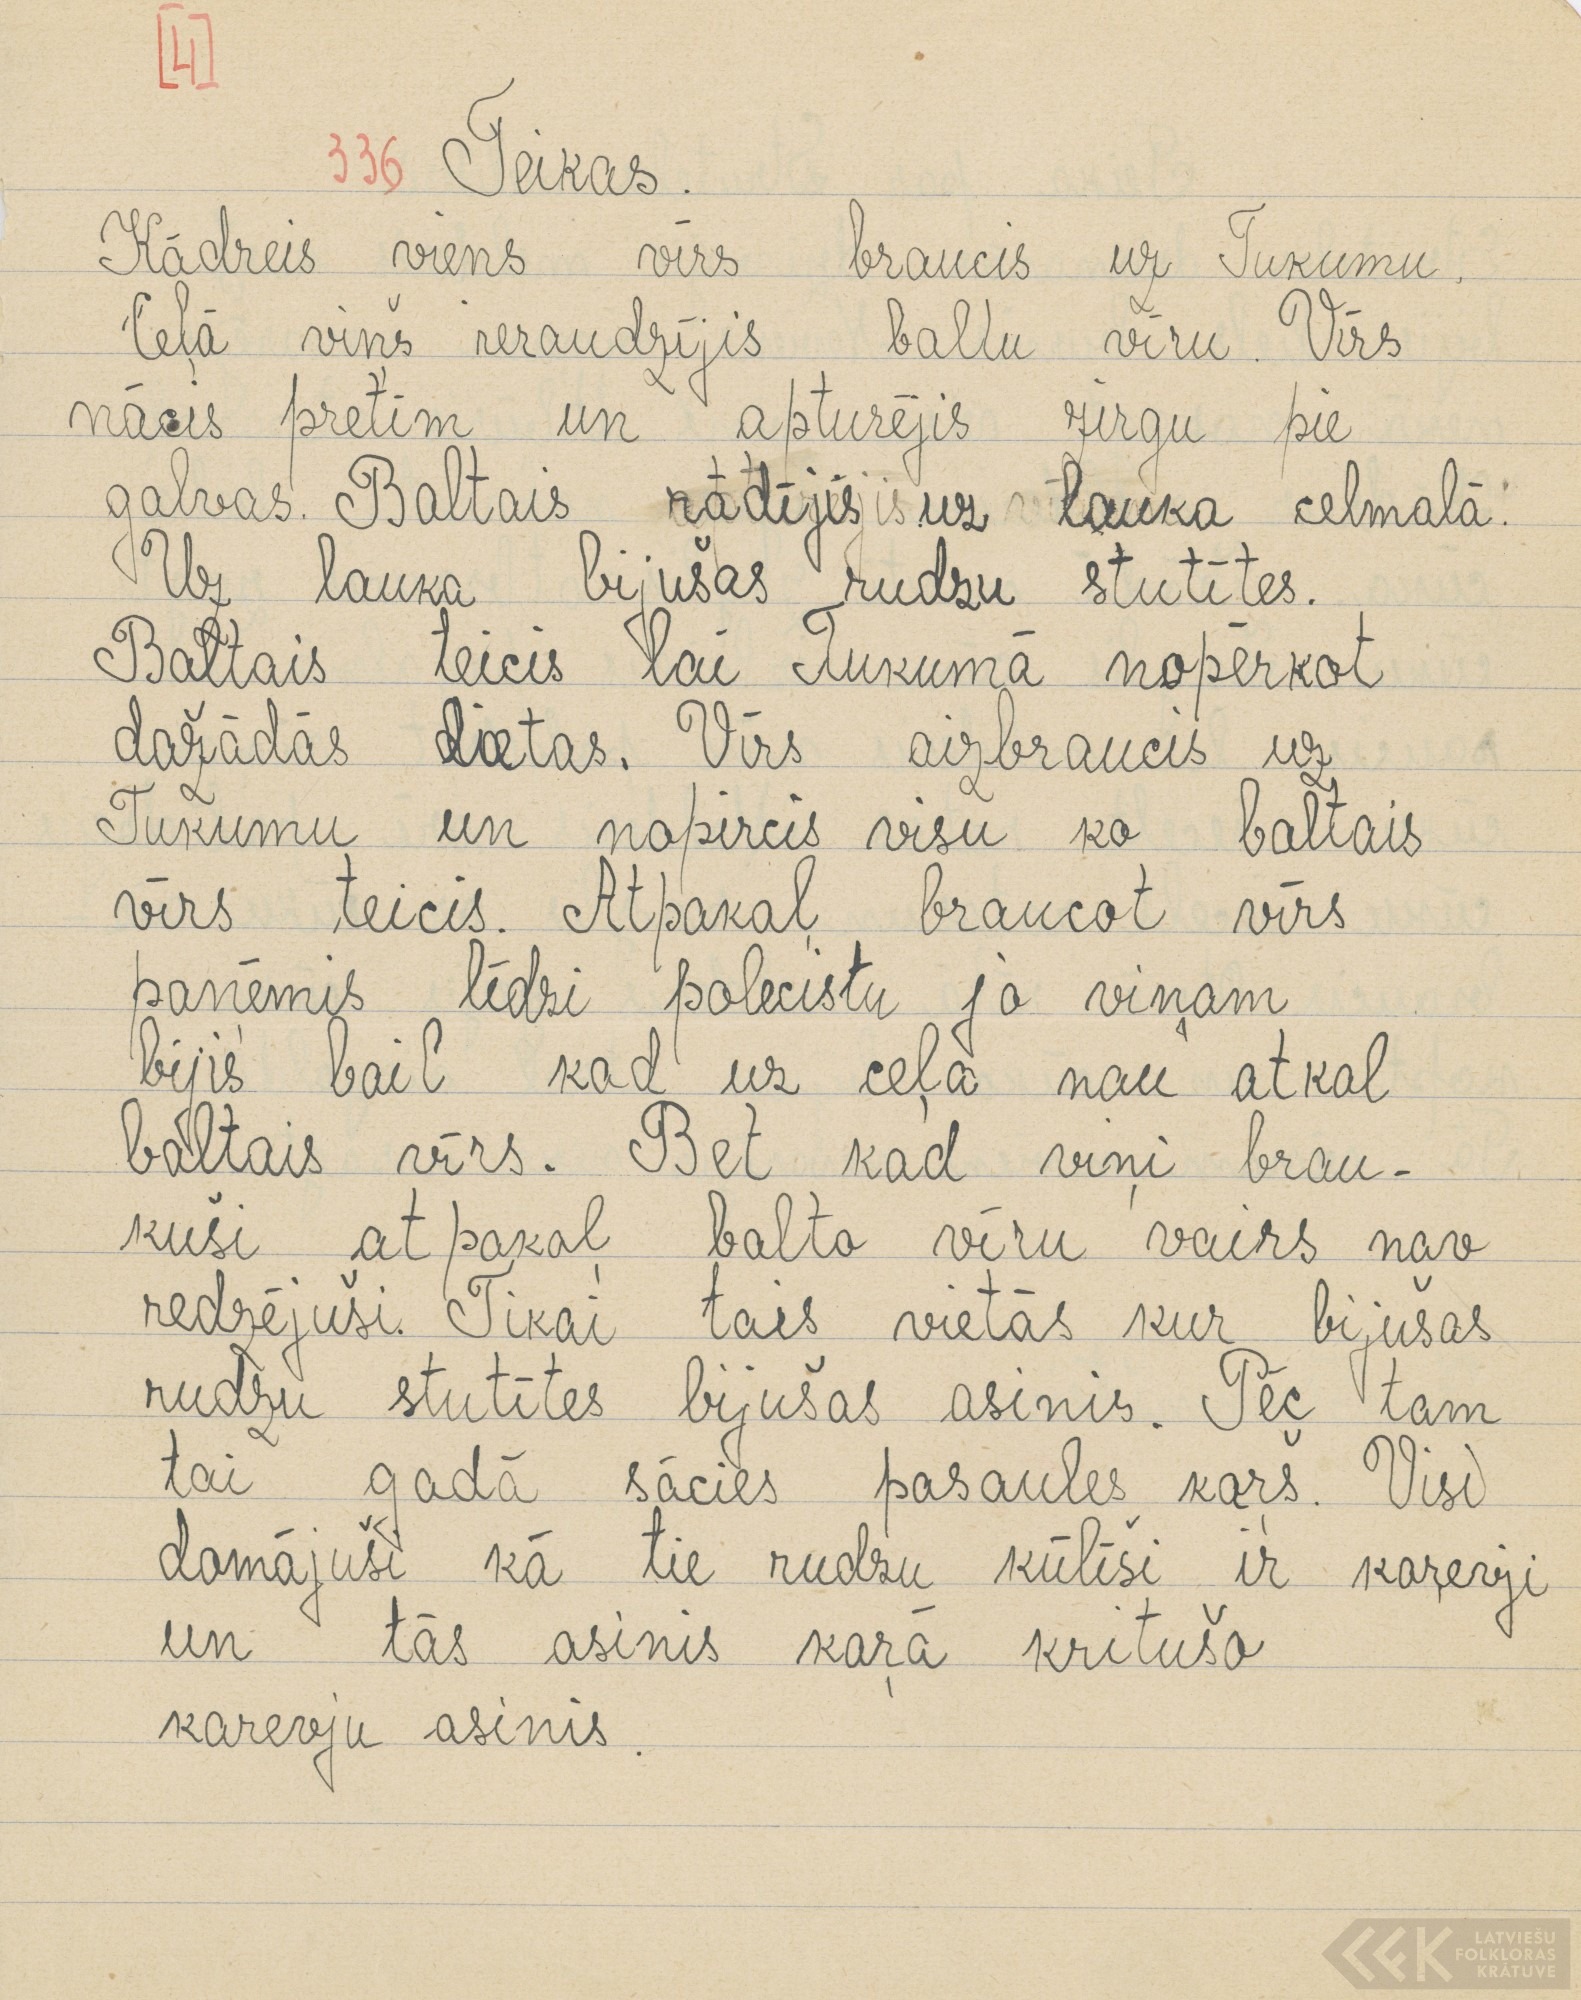 [4]
336 Teikas.
Kādreis viens vīrs braucis uz Tukumu.
Ceļā viņš ieraudzījis baltu vīru. Vīrs
nācis pretīm un apturējis zirgu pie
galvas. Baltais rādījis uz lauka celmalā.
Uz lauka bijušas rudzu stutītes.
Baltais teicis lai Tukumā nopērkot
dažādās lietas. Vīrs aizbraucis uz
Tukumu un nopircis visu ko baltais
vīrs teicis. Atpakaļ braucot vīrs
panēmis līdzi polecistu jo viņam
bijis bail kad uz ceļa nau atkal
baltais vīrs. Bet kad viņi brau-
kuši atpakaļ balto vīru vairs nav
redzējuši. Tikai tais vietās kur bijušas
rudzu stutītes bijušas asinis. Pēc tam
tai gadā sācies pasaules kaŗš. Visi
domājuši kā tie rudzu kūlīši ir kaŗevji
un tās asinis kaŗā kritušo
karevju asinis.
LATVIEŠU
FOLKLORAS
KRĀTUVE